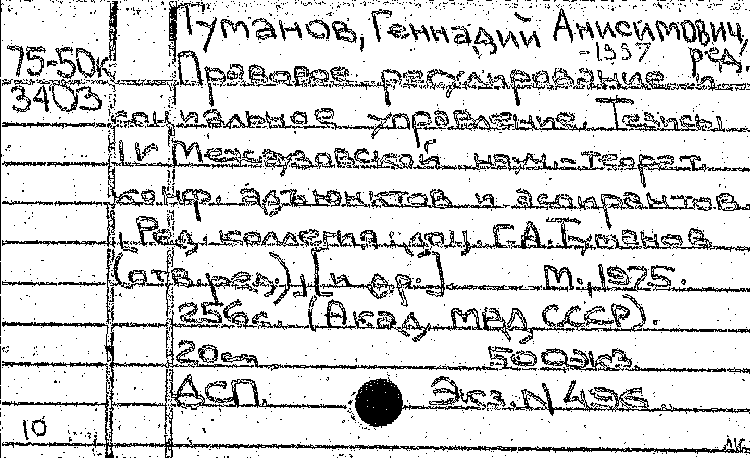 Туманов, Геннадий Анисимович,
-1997 ред.
75-50к Правовое регулирование и
3403
социальное управление. Тезисы
IV Межвузовской науч.-теорет.
конф. адъюнктов и аспирантов
. Ред. коллегия: доц. Г.А.Туманов
(отв.ред.), [и др.] М., 1975.
256с. (Акад. МВД СССР).
20см 500экз.
ДСП. Экз. N 496
10